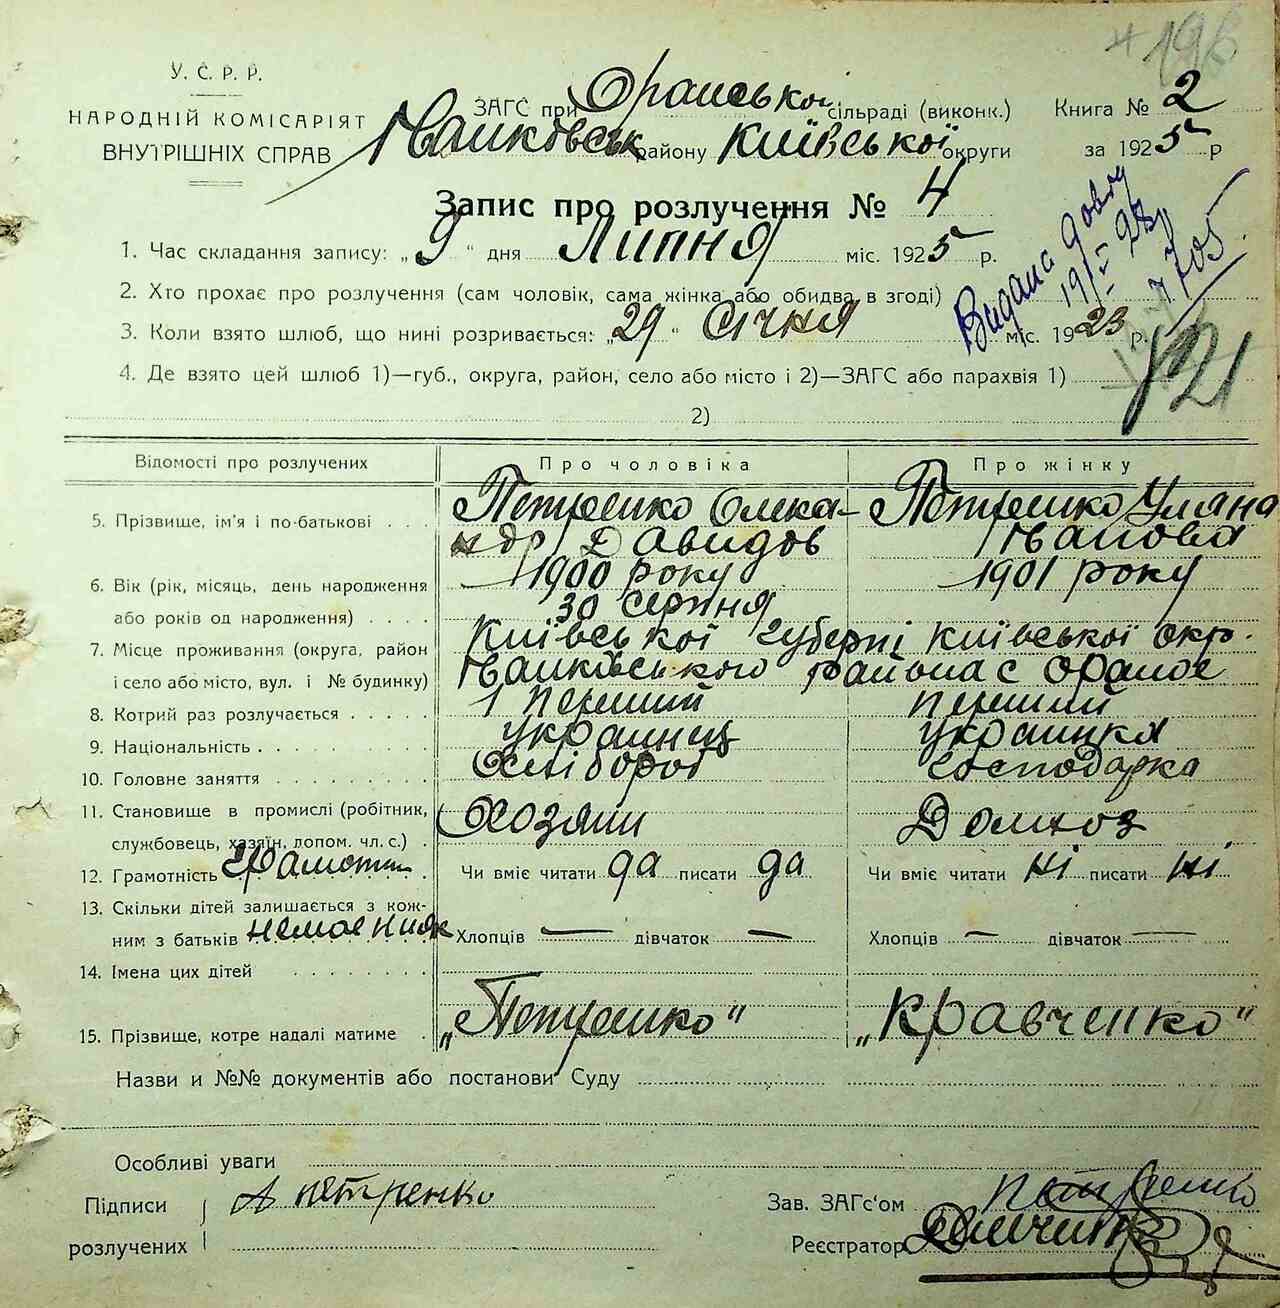 196
У. С. Р. Р.
НАРОДНІЙ КОМІСАРІЯТ
ВНУТРІШНІХ СПРАВ
ЗАГС при Оранській сільраді (виконк.)
району Київської округи
Книга № 2
за 1925 р
Запис про розлучення № 4
1. Час складання запису: „ 9 “ дня Липня міс. 1925 р.
2. Хто прохає про розлучення (сам чоловік, сама жінка або обидва в згоді)
3. Коли взято шлюб, що нині розривається: „ 29 “ Січня міс. 1923 р.
4. Де взято цей шлюб 1)—губ., округа, район, село або місто і 2)—ЗАГС або парахвія 1)
2)
Видана довід
7705
Відомості про розлучених
Про чоловіка
Про жінку
5. Прізвище, ім'я і по-батькові
Петренко Олека-
ндр Давидов
Петренко Уляна
Іванова
6. Вік (рік, місяць, день народження
або років од народження)
1900 року
30 серпня
1901 року
7. Місце проживання (округа, район
і село або місто, вул. і № будинку)
Київської губерні Київської окр.
района с Ораное
8. Котрий раз розлучається
1 перший
перший
9. Національність
украинец
украинка
10. Головне заняття
Хлібороб
господарка
11. Становище в промислі (робітник,
службовець, хазяїн, допом. чл. с.)
Хозяин
Домхоз
12. Грамотність Грамотни
Чи вміє читати да писати да
Чи вміє читати ні писати ні
13. Скільки дітей залишається з кож-
ним з батьків немає
Хлопців — дівчаток —
Хлопців — дівчаток —
14. Імена цих дітей
15. Прізвище, котре надалі матиме
„Петренко"
„Кравченко"
Назви и №№ документів або постанови Суду
Особливі уваги
Підписи
розлучених
А петренко
Зав. ЗАГс'ом Петренко
Реєстратор